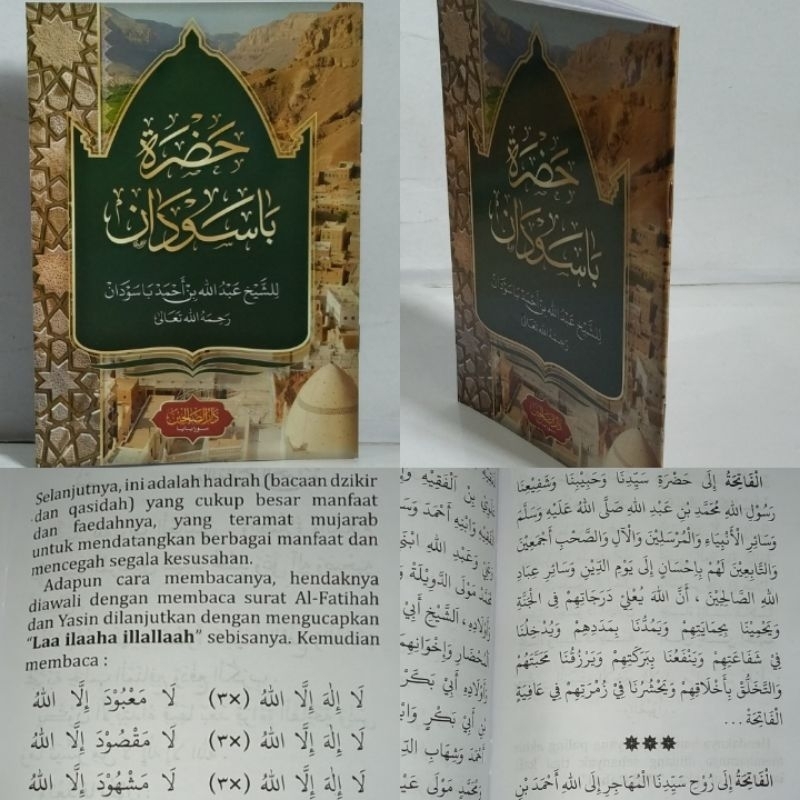 حَضْرَة
بَاسَوْدَان
لِلشَّيْخ عَبْدُ الله بِنْ أَحْمَدْ بَاسَوْدَانْ
رَحِمَهُ الله تَعَالَىٰ
دَارُ الصَّالِحِيْن
سورابايا
حَضْرَة
بَاسَوْدَان
لِلشَّيْخ عَبْدُ الله بِنْ أَحْمَدْ بَاسَوْدَانْ
رَحِمَهُ الله تَعَالَىٰ
Selanjutnya, ini adalah hadrah (bacaan dzikir
dan qasidah) yang cukup besar manfaat
dan faedahnya, yang teramat mujarab
untuk mendatangkan berbagai manfaat dan
mencegah segala kesusahan.
Adapun cara membacanya, hendaknya
diawali dengan membaca surat Al-Fatihah
dan Yasin dilanjutkan dengan mengucapkan
“Laa ilaaha illallaah” sebisanya. Kemudian
membaca :
لَا إِلٰهَ إِلَّا اللهُ (×٣) لَا مَعْبُوْدَ إِلَّا اللهُ
لَا إِلٰهَ إِلَّا اللهُ (×٣) لَا مَقْصُوْدَ إِلَّا اللهُ
لَا إِلٰهَ إِلَّا اللهُ (×٣) لَا مَشْهُوْدَ إِلَّا اللهُ
الْفَاتِحَةُ إِلَى حَضْرَةِ سَيِّدِنَا وَحَبِيْبِنَا وَشَفِيْعِنَا
رَسُوْلِ اللهِ مُحَمَّدِ بْنِ عَبْدِ اللهِ صَلَّى اللهُ عَلَيْهِ وَسَلَّمَ
وَسَائِرِ الْأَنْبِيَاءِ وَالْمُرْسَلِيْنَ وَالْآلِ وَالصَّحْبِ أَجْمَعِيْنَ
وَالتَّابِعِيْنَ لَهُمْ بِإِحْسَانٍ إِلَى يَوْمِ الدِّيْنِ وَسَائِرِ عِبَادِ
اللهِ الصَّالِحِيْنَ ، أَنَّ اللهَ يُعْلِيْ دَرَجَاتِهِمْ فِي الْجَنَّةِ
وَيَحْمِيْنَا بِحِمَايَتِهِمْ وَيَمُدُّنَا بِمَدَدِهِمْ وَيُدْخِلُنَا
فِيْ شَفَاعَتِهِمْ وَيَنْفَعُنَا بِبَرَكَتِهِمْ وَيَرْزُقُنَا مَحَبَّتَهُمْ
وَالتَّخَلُّقَ بِأَخْلَاقِهِمْ وَيَحْشُرُنَا فِيْ زُمْرَتِهِمْ فِيْ عَافِيَةٍ
الْفَاتِحَةْ...
الْفَاتِحَةُ إِلَى رُوْحِ سَيِّدِنَا الْمُهَاجِرِ إِلَى اللهِ أَحْمَدَ بْنِ